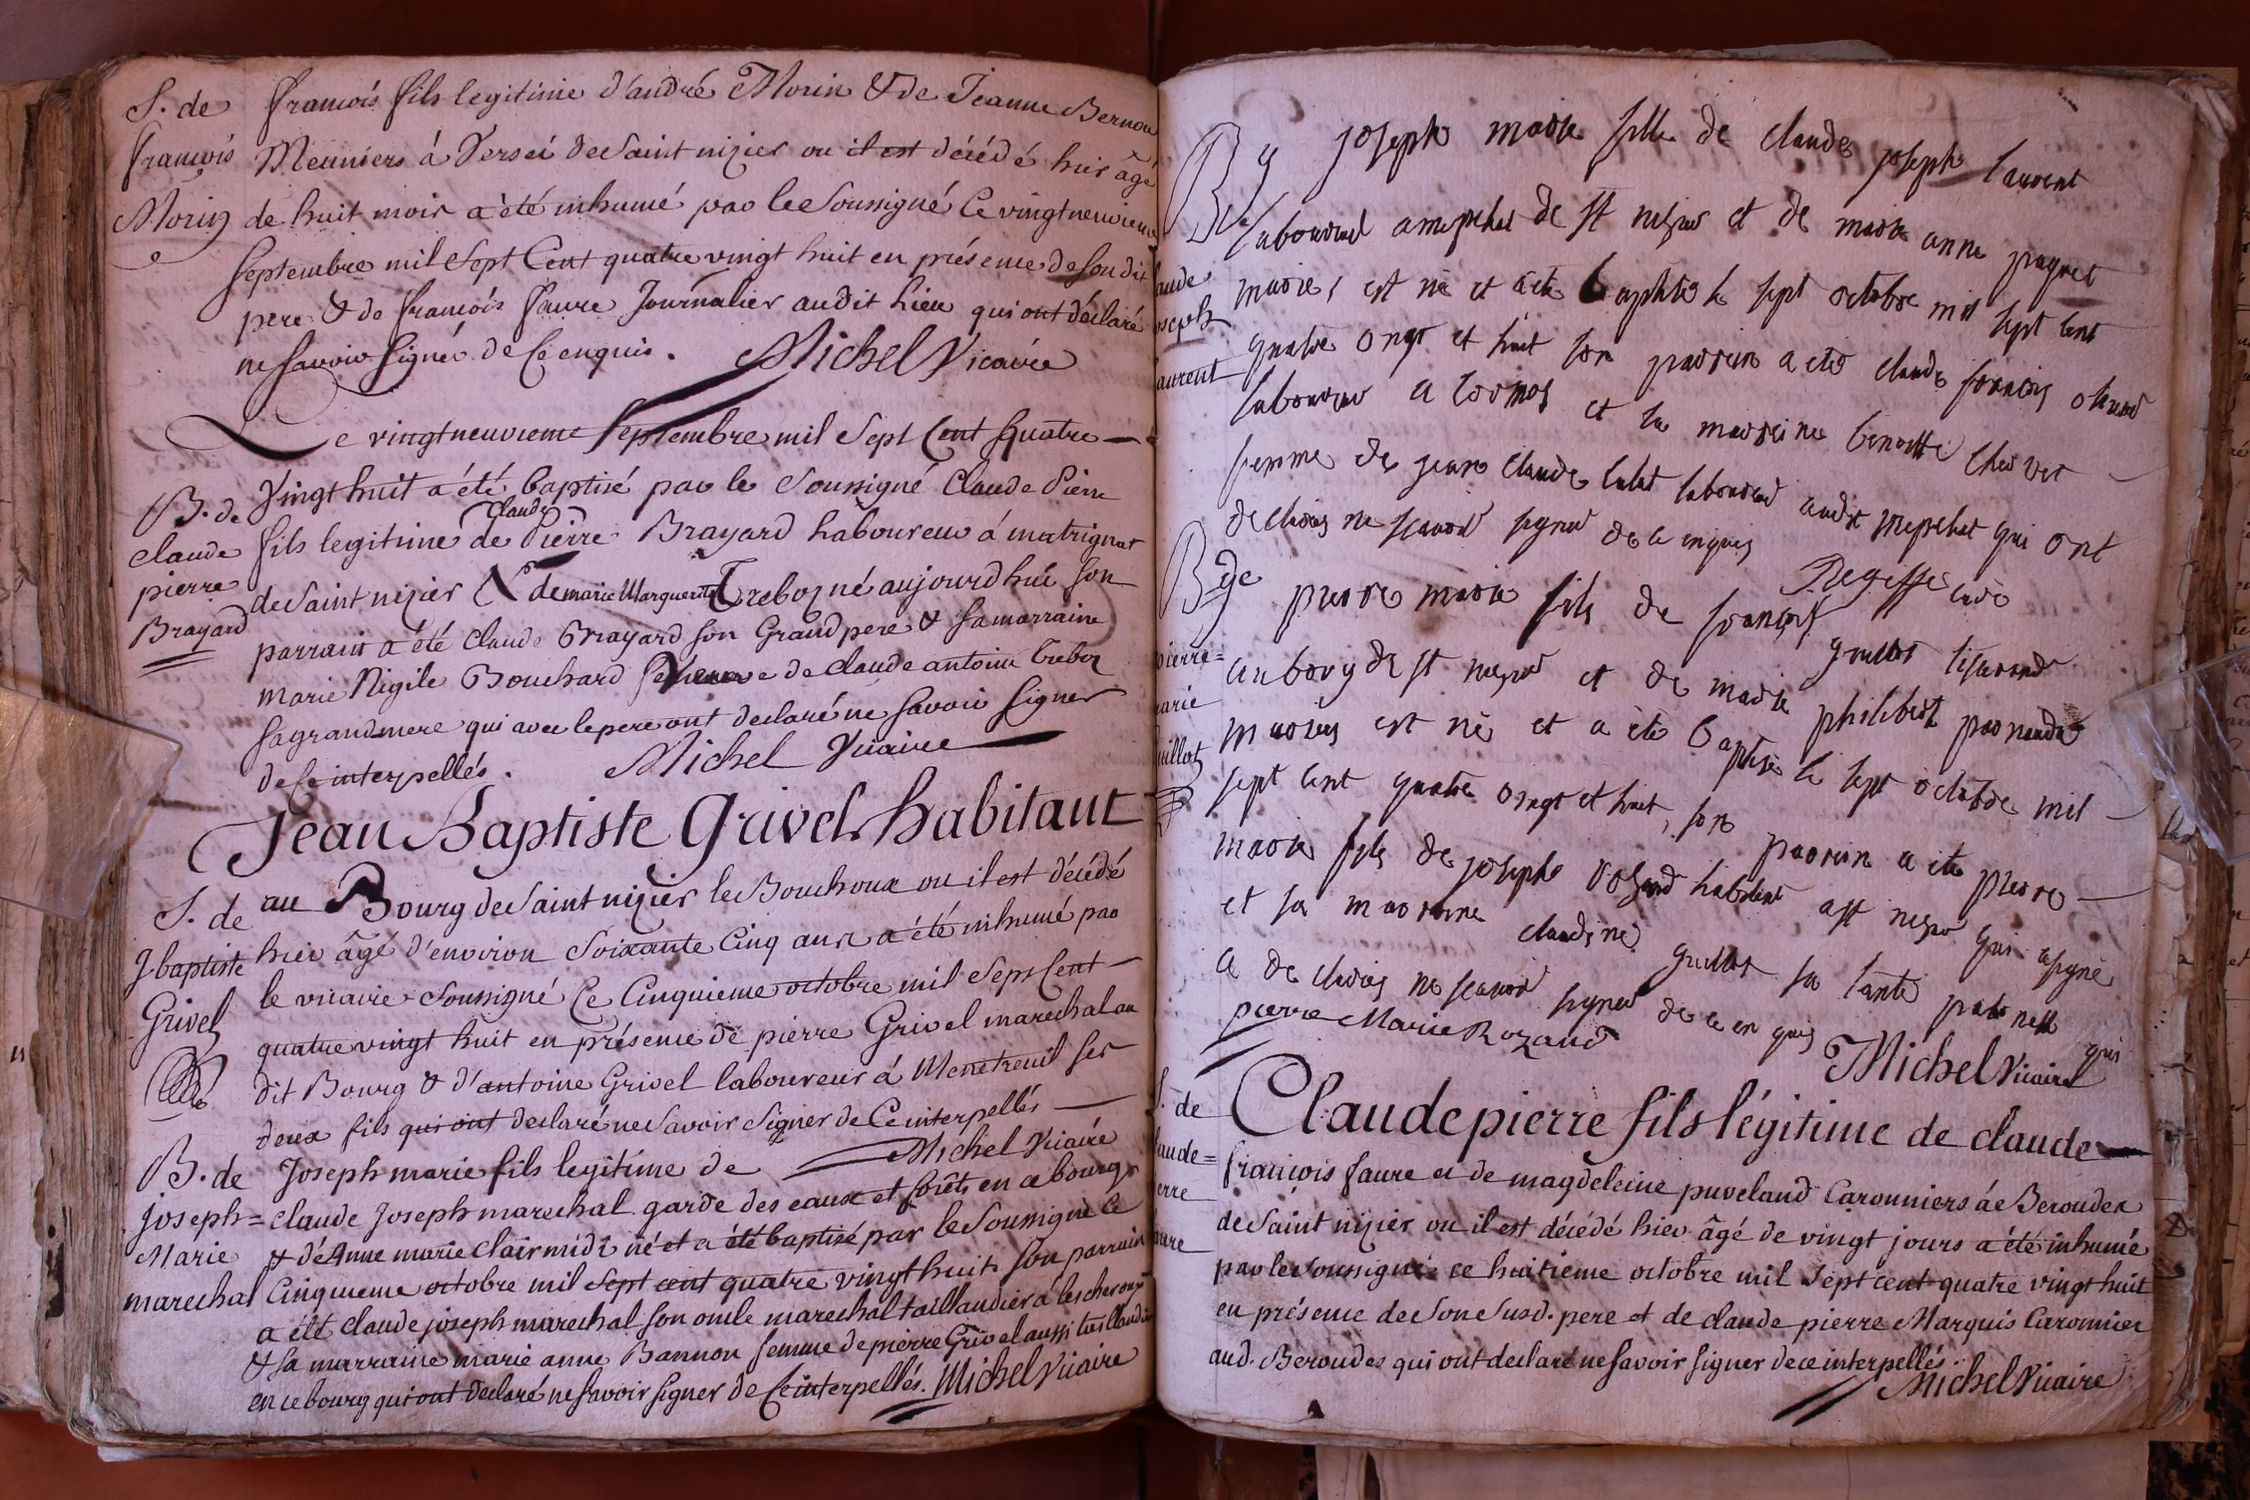 S. de
françois
Morin
françois fils legitime d'andré Morin & de Jeanne Bernou
Meuniers á Versei de Saint nizier ou il est décédé hier âgé
de huit mois a été inhumé par le soussigné Ce vingtneuvieme
septembre mil sept Cent quatre vingt huit en présence de son dit
pere & de françois faure Journalier audit Lieu qui ont déclaré
ne savoir signer de Ce enquis. Michel Vicaire
B. de
claude
pierre
Brayard
Le vingtneuvieme septembre mil sept Cent quatre
Vingt huit a été baptisé par le soussigné Claude Pierre
fils legitime de Claude Pierre Brayard laboureur á matrignat
de Saint nizier & de marie Marguerite Treboz né aujourdhui son
parrain a été Claude Brayard son Grand pere & sa marraine
marie Bouchard veuve de claude antoine treboz
sa grand mere qui avec le pere ont declaré ne savoir signer
de Ce interpellés. Michel Vicaire
S. de
J-baptiste
Grivel
Jean Baptiste Grivel habitant
au Bourg de Saint nizier le Bouchoux ou il est décédé
hier âgé d'environ soixante cinq ans a été inhumé par
le vicaire soussigné Ce Cinquieme octobre mil sept Cent
quatre vingt huit en présence de pierre Grivel marechal au
dit Bourg & d'antoine Grivel laboureur á Menetreuil ses
deux fils qui ont declaré ne savoir signer de Ce interpellés
Michel Vicaire
B. de
joseph=
Marie
marechal
Joseph marie fils legitime de
claude Joseph marechal garde des eaux et forêts en ce bourg
& de Anne marie clairmidi né et a été baptisé par le soussigné ce
Cinquieme octobre mil sept cent quatre vingt huit son parrain
a été claude joseph marechal son oncle marechal taillandier á lescheroux
& sa marraine marie anne Bannon femme de pierre Grivel aussi taillandier
en ce bourg qui ont declaré ne savoir signer de Ce interpellés. Michel Vicaire
B de
aude
oseph
aurent
joseph marie fille de claude joseph laurent
laboureur a mepelhat de st nizier et de marie anne poguet
mariés est né et a été baptisé le sept octobre mil sept cent
quatre vingt et huit son parrein a été claude françois
laboureur a cormos et sa marreine benoitte chervet
femme de jean claude calat laboureur audit mepelhat qui ont
declarés ne scavoir signer de ce enquis Regesse curé
B de
pierre=
marie
uillot
pierre marie fils de françois guillot tisserand
au bourg de st nizier et de marie philiberte
mariés est né et a été baptisé le sept octobre mil
sept cent quatre vingt et huit, son parrein a été pierre
marie fils de joseph rozand habitant a st nizier qui a signé
et sa marreine claudine guillot sa tante paternelle qui
a declarés ne scavoir signer de ce en quis
pierre Marie Rozand Michel Vicaire
S. de
aude=
erre
aure
Claude pierre fils légitime de claude
françois faure et de magdeleine puveland Caronniers á Beroudes
de Saint nizier ou il est décédé hier âgé de vingt jours a été inhumé
par le soussigné ce huitième octobre mil sept cent quatre vingt huit
en présence de son susd. pere et de claude pierre Marquis Caronnier
aud. Beroudes qui ont declaré ne savoir signer de ce interpellés.
Michel Vicaire